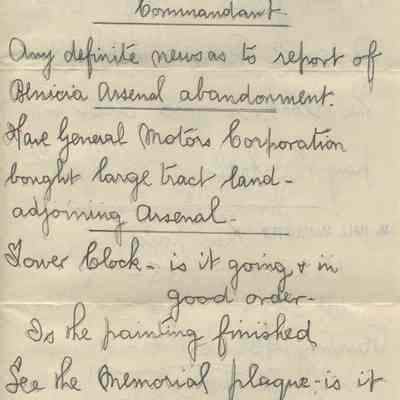 Commandant
Any definite news as to report of
Benicia Arsenal abandonment.
Have General Motors Corporation
bought large tract land -
adjoining Arsenal -
Tower Clock - is it going & in
good order -
Is the painting finished
See the Memorial plaque - is it